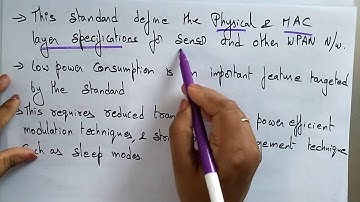 → This standard define the Physical & MAC
layer specifications for sensor and other WPAN N/w.
→ low power consumption is an important feature targeted
by the standard
→ This requires reduced power efficient
modulation techniques, &
Such as sleep modes.